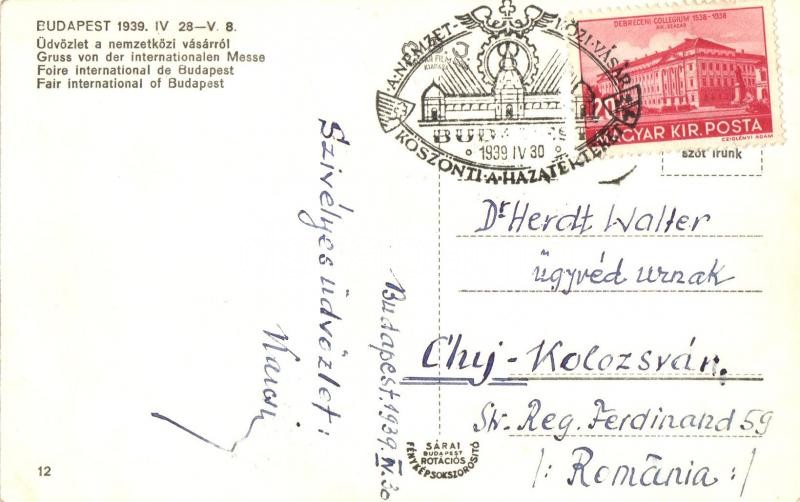 BUDAPEST 1939. IV 28—V. 8.
Üdvözlet a nemzetközi vásárról
Gruss von der internationalen Messe
Foire international de Budapest
Fair international of Budapest
A·NEMZETKÖZI·VÁSÁR
BUDAPEST
1939 IV 30
KÖSZÖNTI·A·HAZATÉRTEKET
DEBRECENI COLLEGIUM 1538-1938
XIX. SZÁZAD
20
MAGYAR KIR. POSTA
CZIGLÉNYI ÁDÁM
szót írunk
Szívélyes üdvözlet:
Budapest. 1939. IV. 30
Dr Herdt Walter
ügyvéd urnak
Cluj-Kolozsvár.
Str. Reg. Ferdinand 59
/: România :/
SÁRAI
BUDAPEST
ROTÁCIÓS
FÉNYKÉPSOKSZOROSITÓ
12